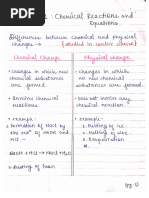 : Chemical Reactions and
Equations
Differences between chemical and physical
changes → (studied in earlier classes)
Chemical Change
Physical change
• Changes in which new
chemical substances
are formed.
• Changes in which
no new chemical
substances are formed.
• Involves chemical
reactions.
• Does not involve any
chemical reaction.
• example →
• Formation of NaCl by
NaOH + HCl → NaCl + H₂O
• Rusting of Iron
• example →
1. Melting of Ice
2. Melting of
3. Evaporation
(pg-1)